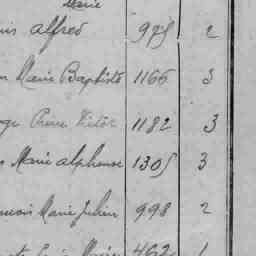 Marie
Alfred 975 2
Marie Baptiste 1166 3
Pierre Victor 1182 3
Marie alphonse 1305 3
Marie Julien 998 2
Marie 462 1